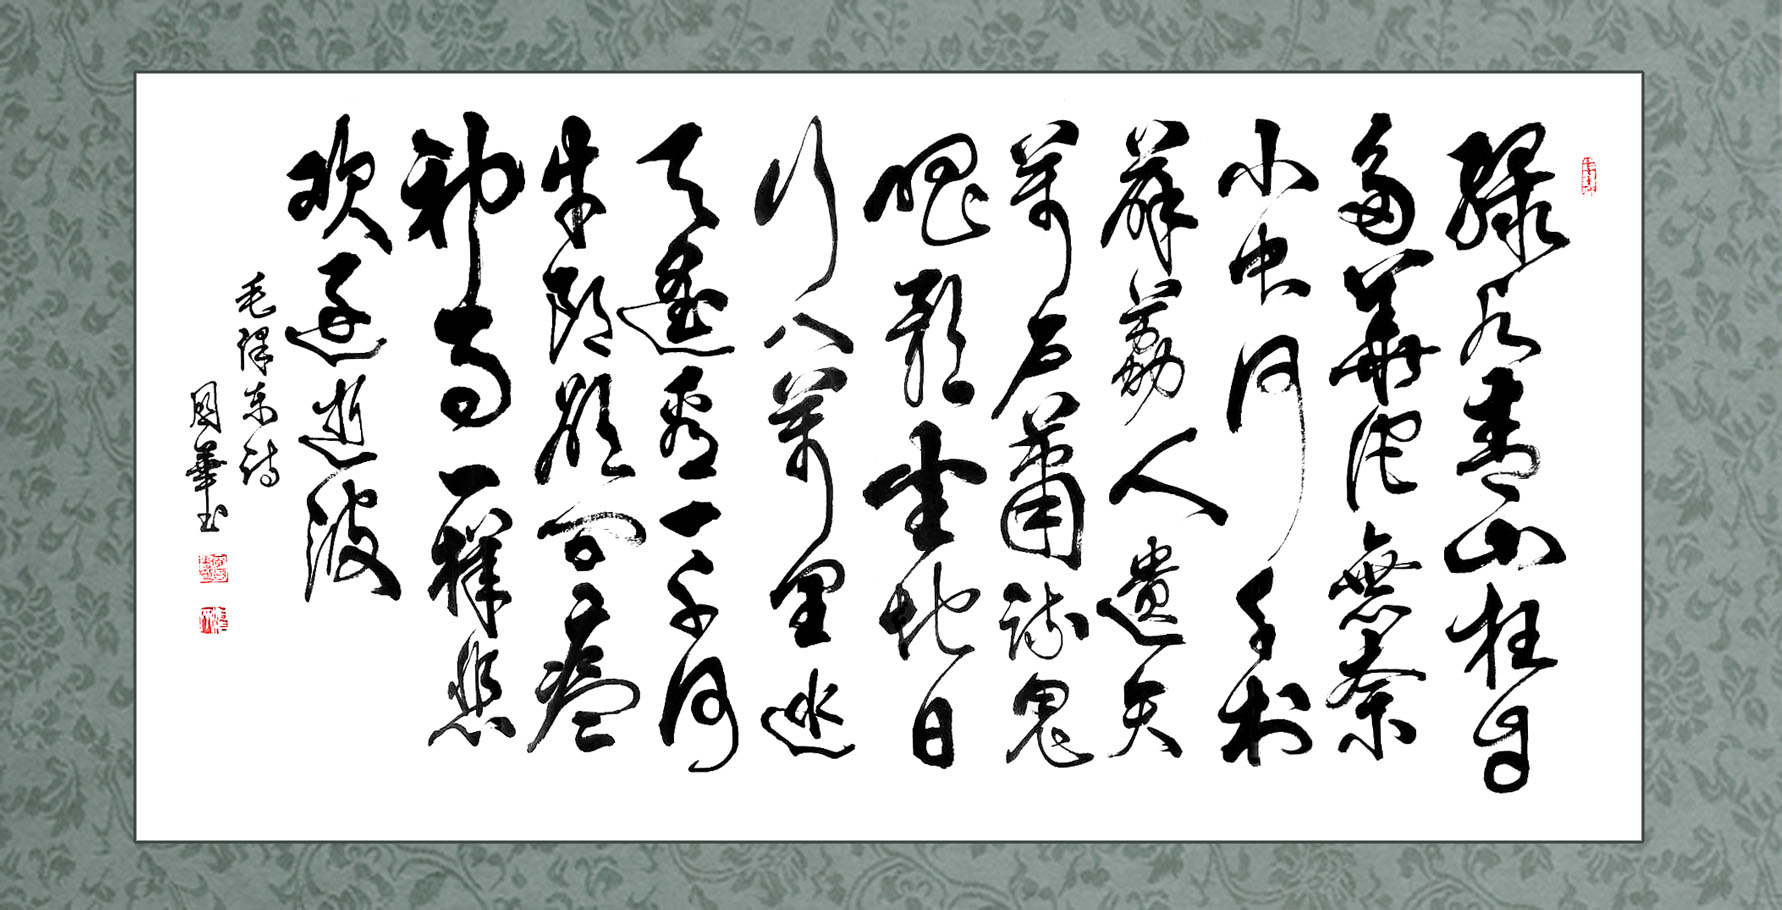 綠水青山枉自
多華佗無奈
小虫何千村
薜荔人遺矢
萬户蕭疏鬼
唱歌坐地日
行八萬里巡
天遥看一千河
牛郎欲问瘟
神事一樣悲
欢逐逝波
毛澤东诗
国華书